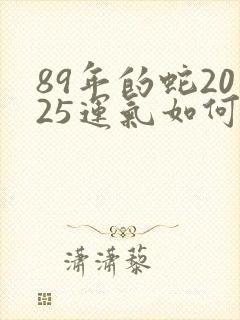 89年的蛇20
25運氣如何
潇潇藜